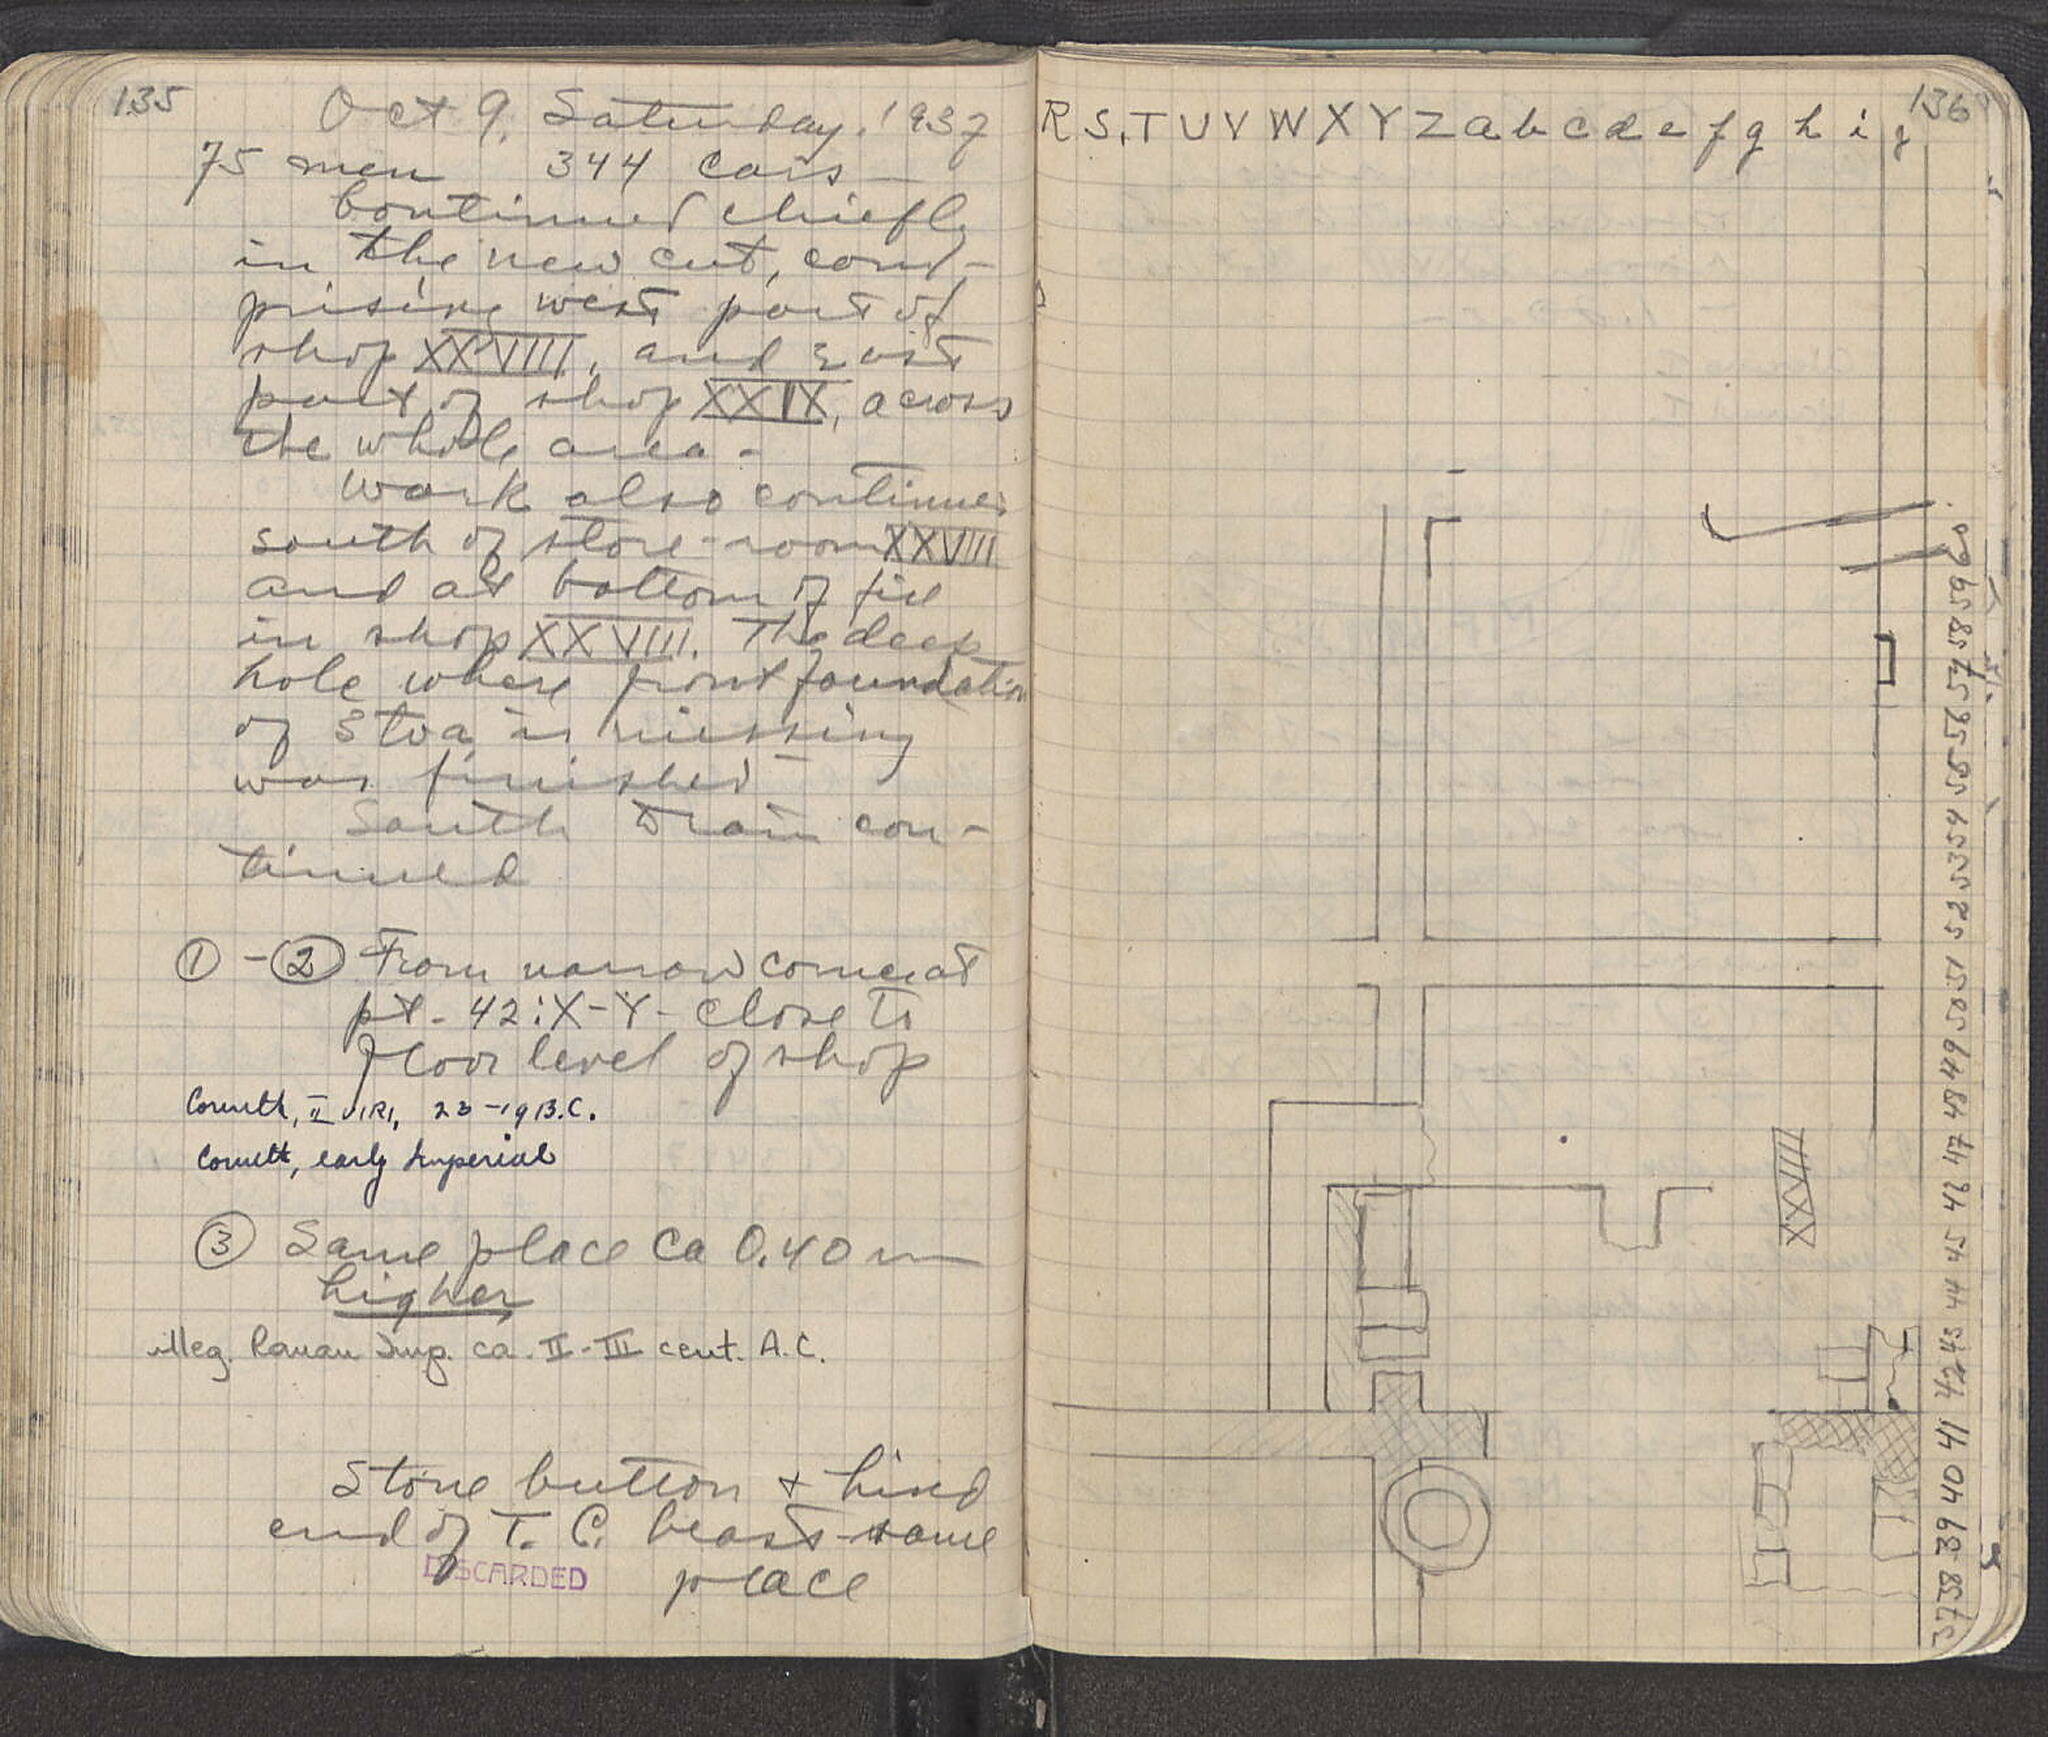 135
Oct 9. Saturday. 1937
75 men 344 cars
Continued chiefly
in the new cut, com-
prising west part of
shop XXVIII, and East
part of shop XXIX, across
the whole area.
Work also continues
south of store-room XXVIII
and at bottom of fill
in shop XXVIII. The deep
hole where front foundation
of Stoa is missing
was finished
South Drain con-
tinued
① - ② From narrow corner at
pt. 42:X-Y- close to
floor level of shop
Corinth, II VIRI, 23-19 B.C.
Corinth, early Imperial
③ Same place ca 0.40 m
higher
illeg. Roman Imp. ca. II-III cent. A.C.
Stone button + hind
end of T.C. beast same
place
DISCARDED
136
R S T U V W X Y Z a b c d e f g h i j
XXVIII
37 38 39 40 41 42 43 44 45 46 47 48 49 50 51 52 53 54 55 56 57 58 59 60